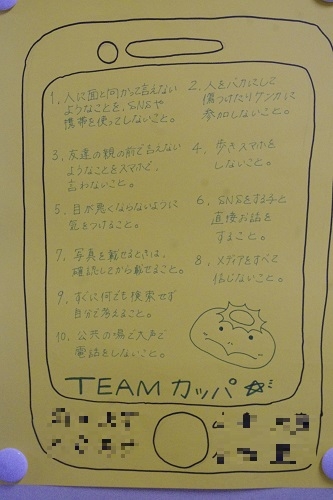 1. 人に面と向かって言えない
ようなことを、SNSや
携帯を使ってしないこと。
2. 人をバカにして
傷つけたりケンカに
参加しないこと。
3. 友達の親の前で言えない
ようなことをスマホで
言わないこと。
4. 歩きスマホを
しないこと。
5. 目が悪くならないように
気をつけること。
6. SNSをする子と
直接お話を
すること。
7. 写真を載せるときは、
確認してから載せること。
8. メディアをすべて
信じないこと。
9. すぐに何でも検索せず
自分で考えること。
10. 公共の場で大声で
電話をしないこと。
TEAMカッパ☆